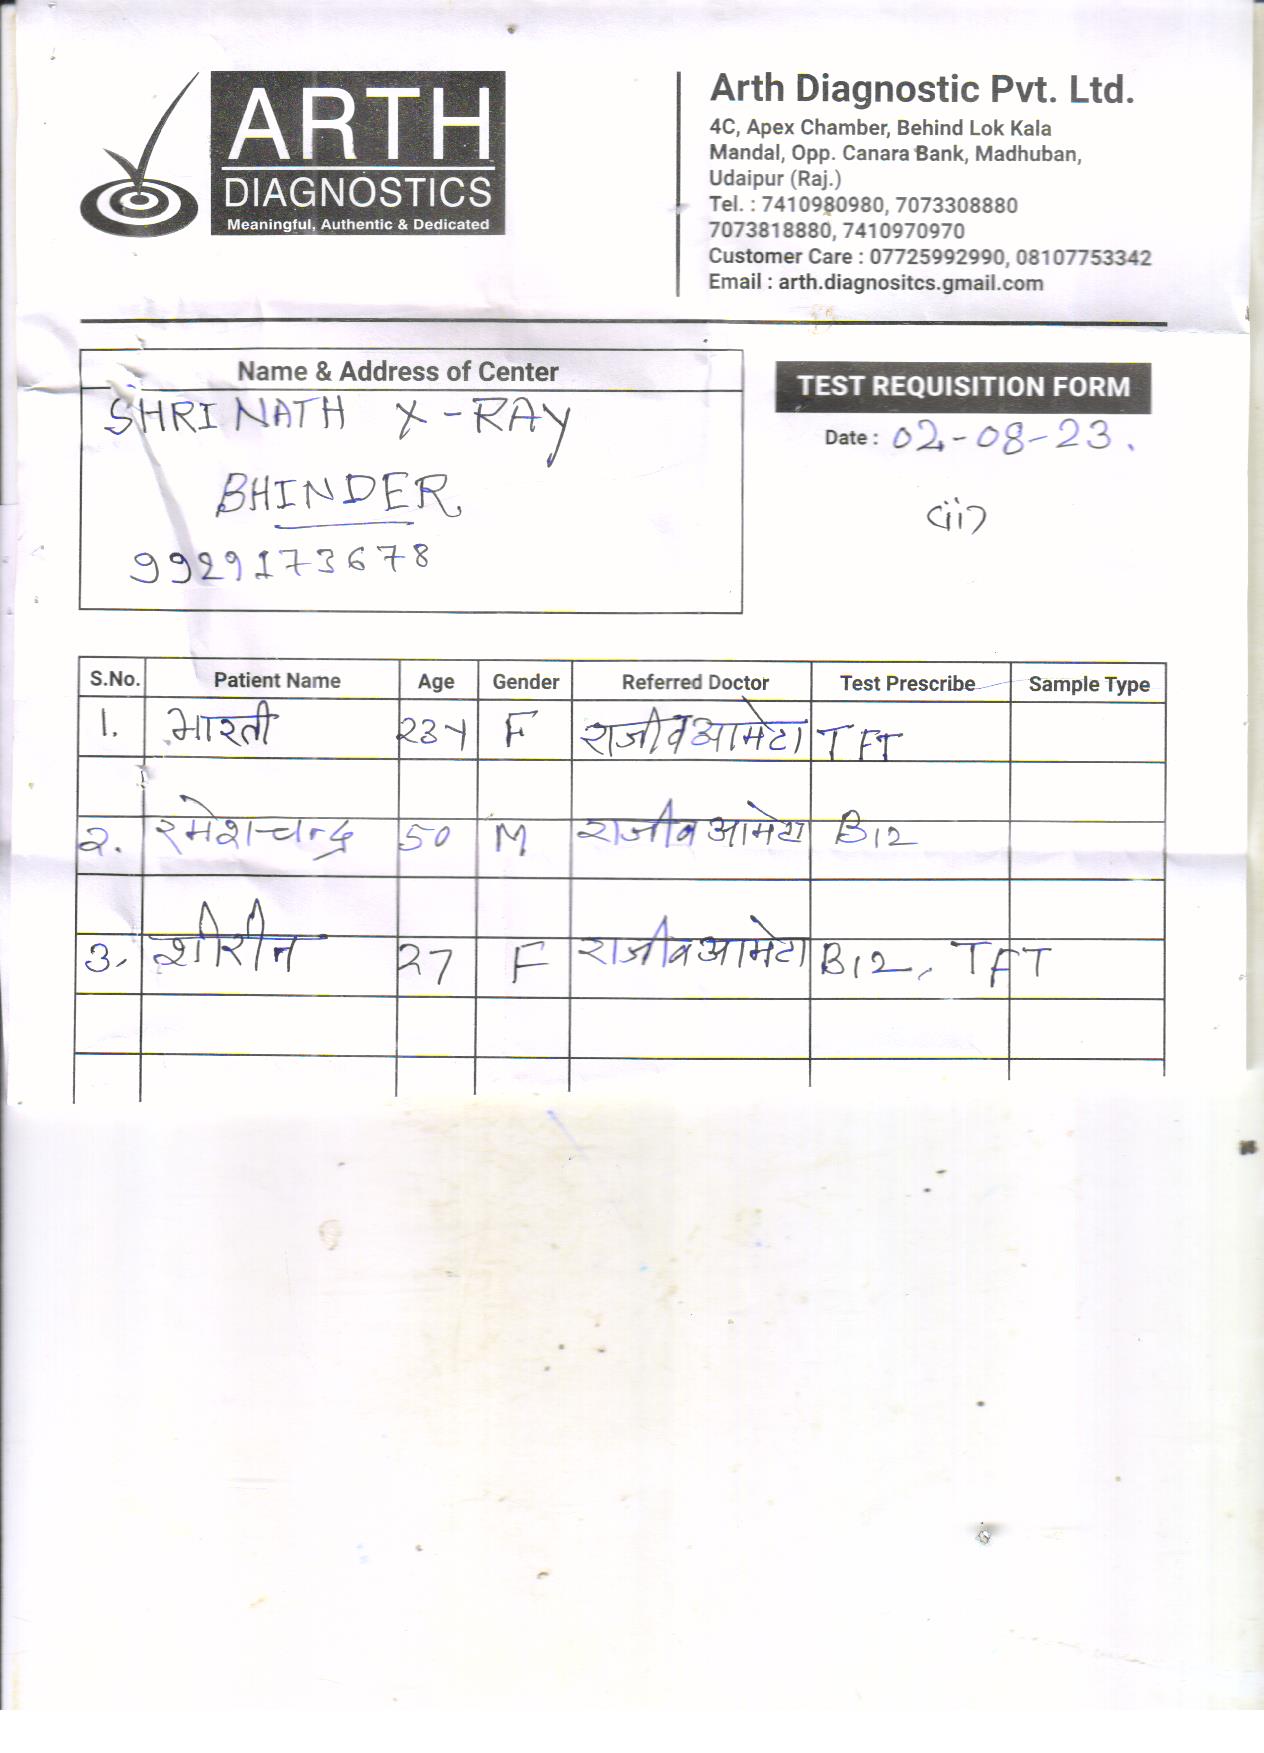 ARTH
DIAGNOSTICS
Meaningful, Authentic & Dedicated
Arth Diagnostic Pvt. Ltd.
4C, Apex Chamber, Behind Lok Kala
Mandal, Opp. Canara Bank, Madhuban,
Udaipur (Raj.)
Tel. : 7410980980, 7073308880
7073818880, 7410970970
Customer Care : 07725992990, 08107753342
Email : arth.diagnositcs.gmail.com
Name & Address of Center
SHRINATH X-RAY
BHINDER
9929173678
TEST REQUISITION FORM
Date : 02-08-23.
(ii)
S.No. Patient Name Age Gender Referred Doctor Test Prescribe Sample Type
1. भारती 23Y F राजीव आमेटा TFT
2. रमेशचन्द्र 50 M राजीव आमेटा B12
3. शीरीन 27 F राजीव आमेटा B12, TFT